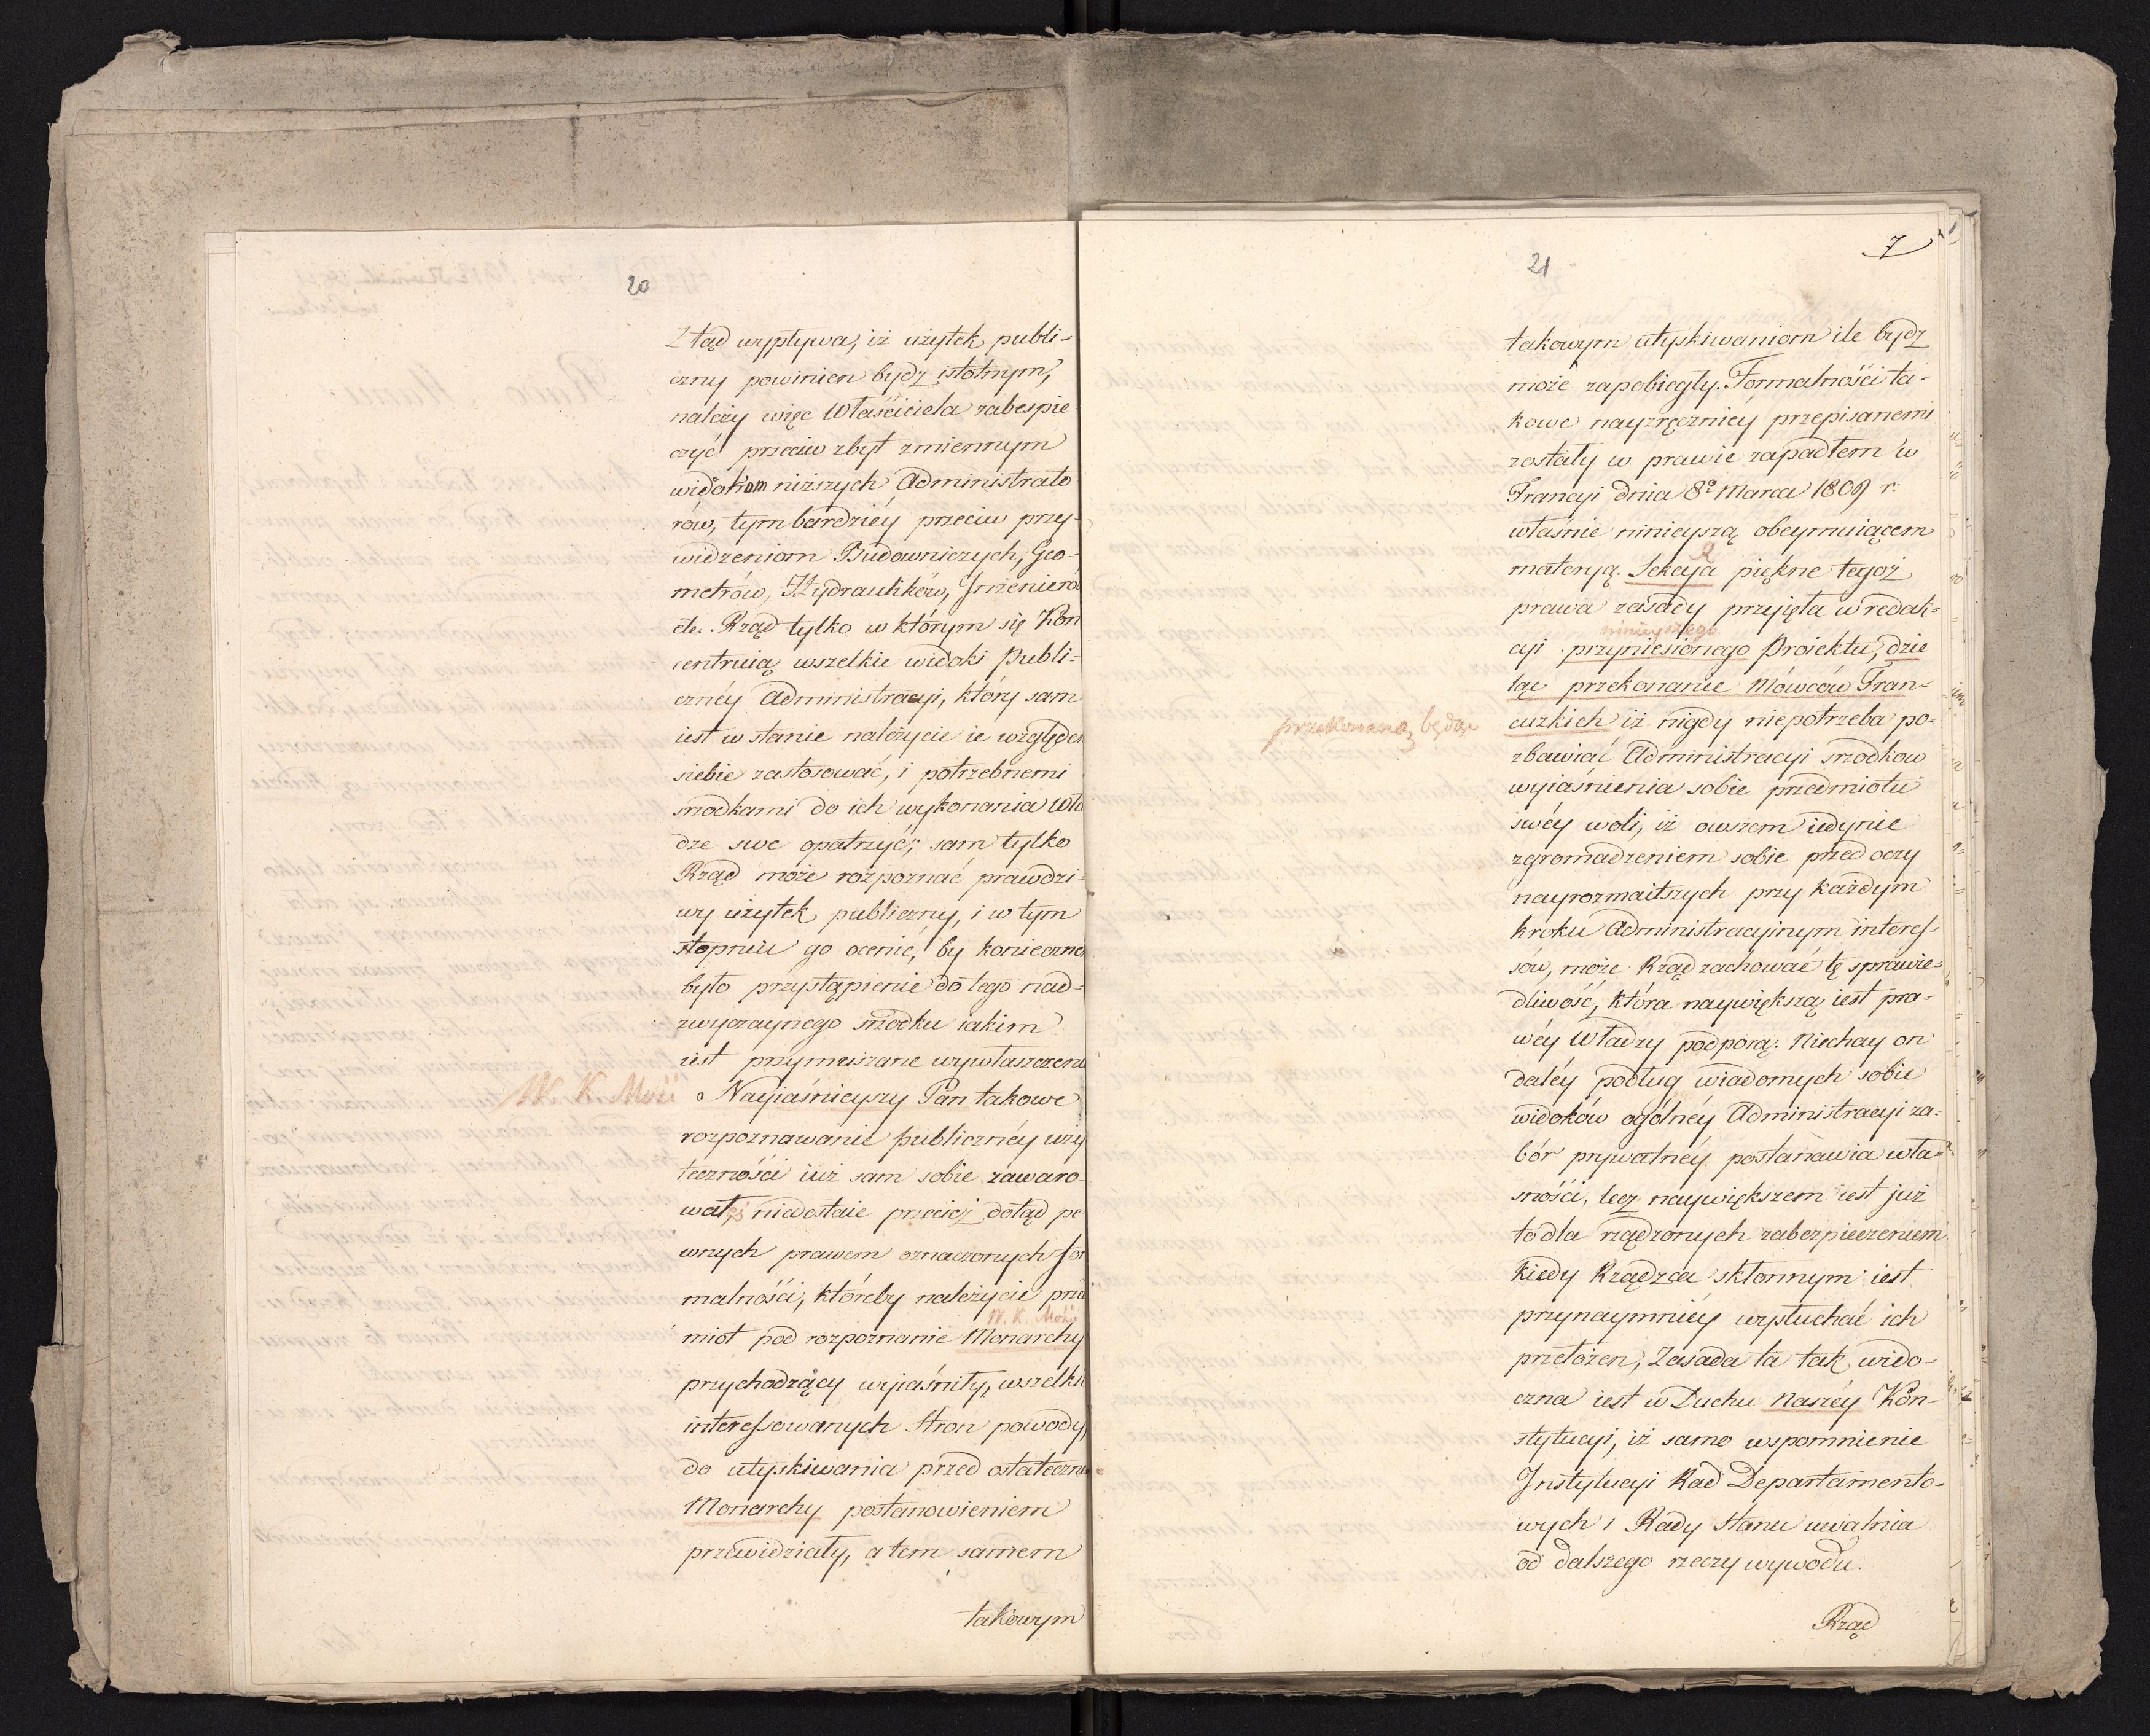 20
Ztąd wypływa, iż użytek publi=
czny powinien bydź istotnym,
należy więc Właściciela zabespie
czyć przeciw zbyt zmiennym
widokom niższych Administrato
rów, tym bardziéy przeciw przy-
widzeniom Budowniczych, Geo-
metrów, Hydraulików, Jnżenieró
etc. Rząd tylko w którym się Kon
centruią wszelkie widoki Publi=
cznéy Administracyi, który sam
iest w stanie należycie ie względe
siebie zastosować, i potrzebnemi
srzodkami do ich wykonania Wła
dze swe opatrzyć; sam tylko
Rząd może rozpoznać prawdzi-
wy użytek publiczny, i w tym
stopniu go ocenić, by konieczne
było przystąpienie do tego nad-
zwyczaynego srzodku iakim
iest przymuszane wywłaszczeni
W. K. Mość Nayiaśnieyszy Pan takowe
rozpoznawanie publicznéy uży
teczności iuż sam sobie zawaro-
wał, niedostaie przecież dotąd pe
wnych prawem oznaczonych for
malności, któreby należycie prze
W. K. Mości
miot pod rozpoznanie Monarchy
przychodzący wyiaśniły, wszelki
interessowanych Stron powody,
do utyskiwania przed ostateczne
Monarchy postanowieniem
przewidziały, a tem samem
takowym
7
21
takowym utyskiwaniom ile bydź
może zapobiegły. Formalności ta-
kowe nayzręczniéy przepisanemi
zostały w prawie zapadłem w
Francyi dnia 8º Marca 1809 r:
właśnie ninieyszą obeymuiącem
materyą. Sekcya piękne tegoż
prawa zasady przyięła w redak-
ninieyszego
cyi przyniesionego Proiektu, dzie
ląc przekonanie Mówców Fran-
przekonaną będąc cuzkich iż nigdy niepotrzeba po-
zbawiać Administracyi srzodkow
wyiaśnienia sobie przedmiotu
swéy woli, iż owszem iedynie
zgromadzeniem sobie przed oczy
nayrozmaitszych przy każdym
kroku Administracyinym interes-
sów, może Rząd zachować tę sprawie-
dliwość, która naywiększą iest pra-
wéy Władzy podporą. Niechay on
daléy podług wiadomych sobie
widoków ogólnéy Administracyi za-
bór prywatnéy postanawia wła-
sności, lecz naywiększem iest już
to dla rządzonych zabezpieczeniem
kiedy Rządzca skłonnym iest
przynaymniéy wysłuchać ich
przełożeń, Zasada ta tak wido-
czna iest w Duchu Naszéy Kon-
stytucyi, iż samo wspomnienie
Jnstytucyi Rad Departamento-
wych i Rady Stanu uwalnia
od dalszego rzeczy wywodu.
Rząd